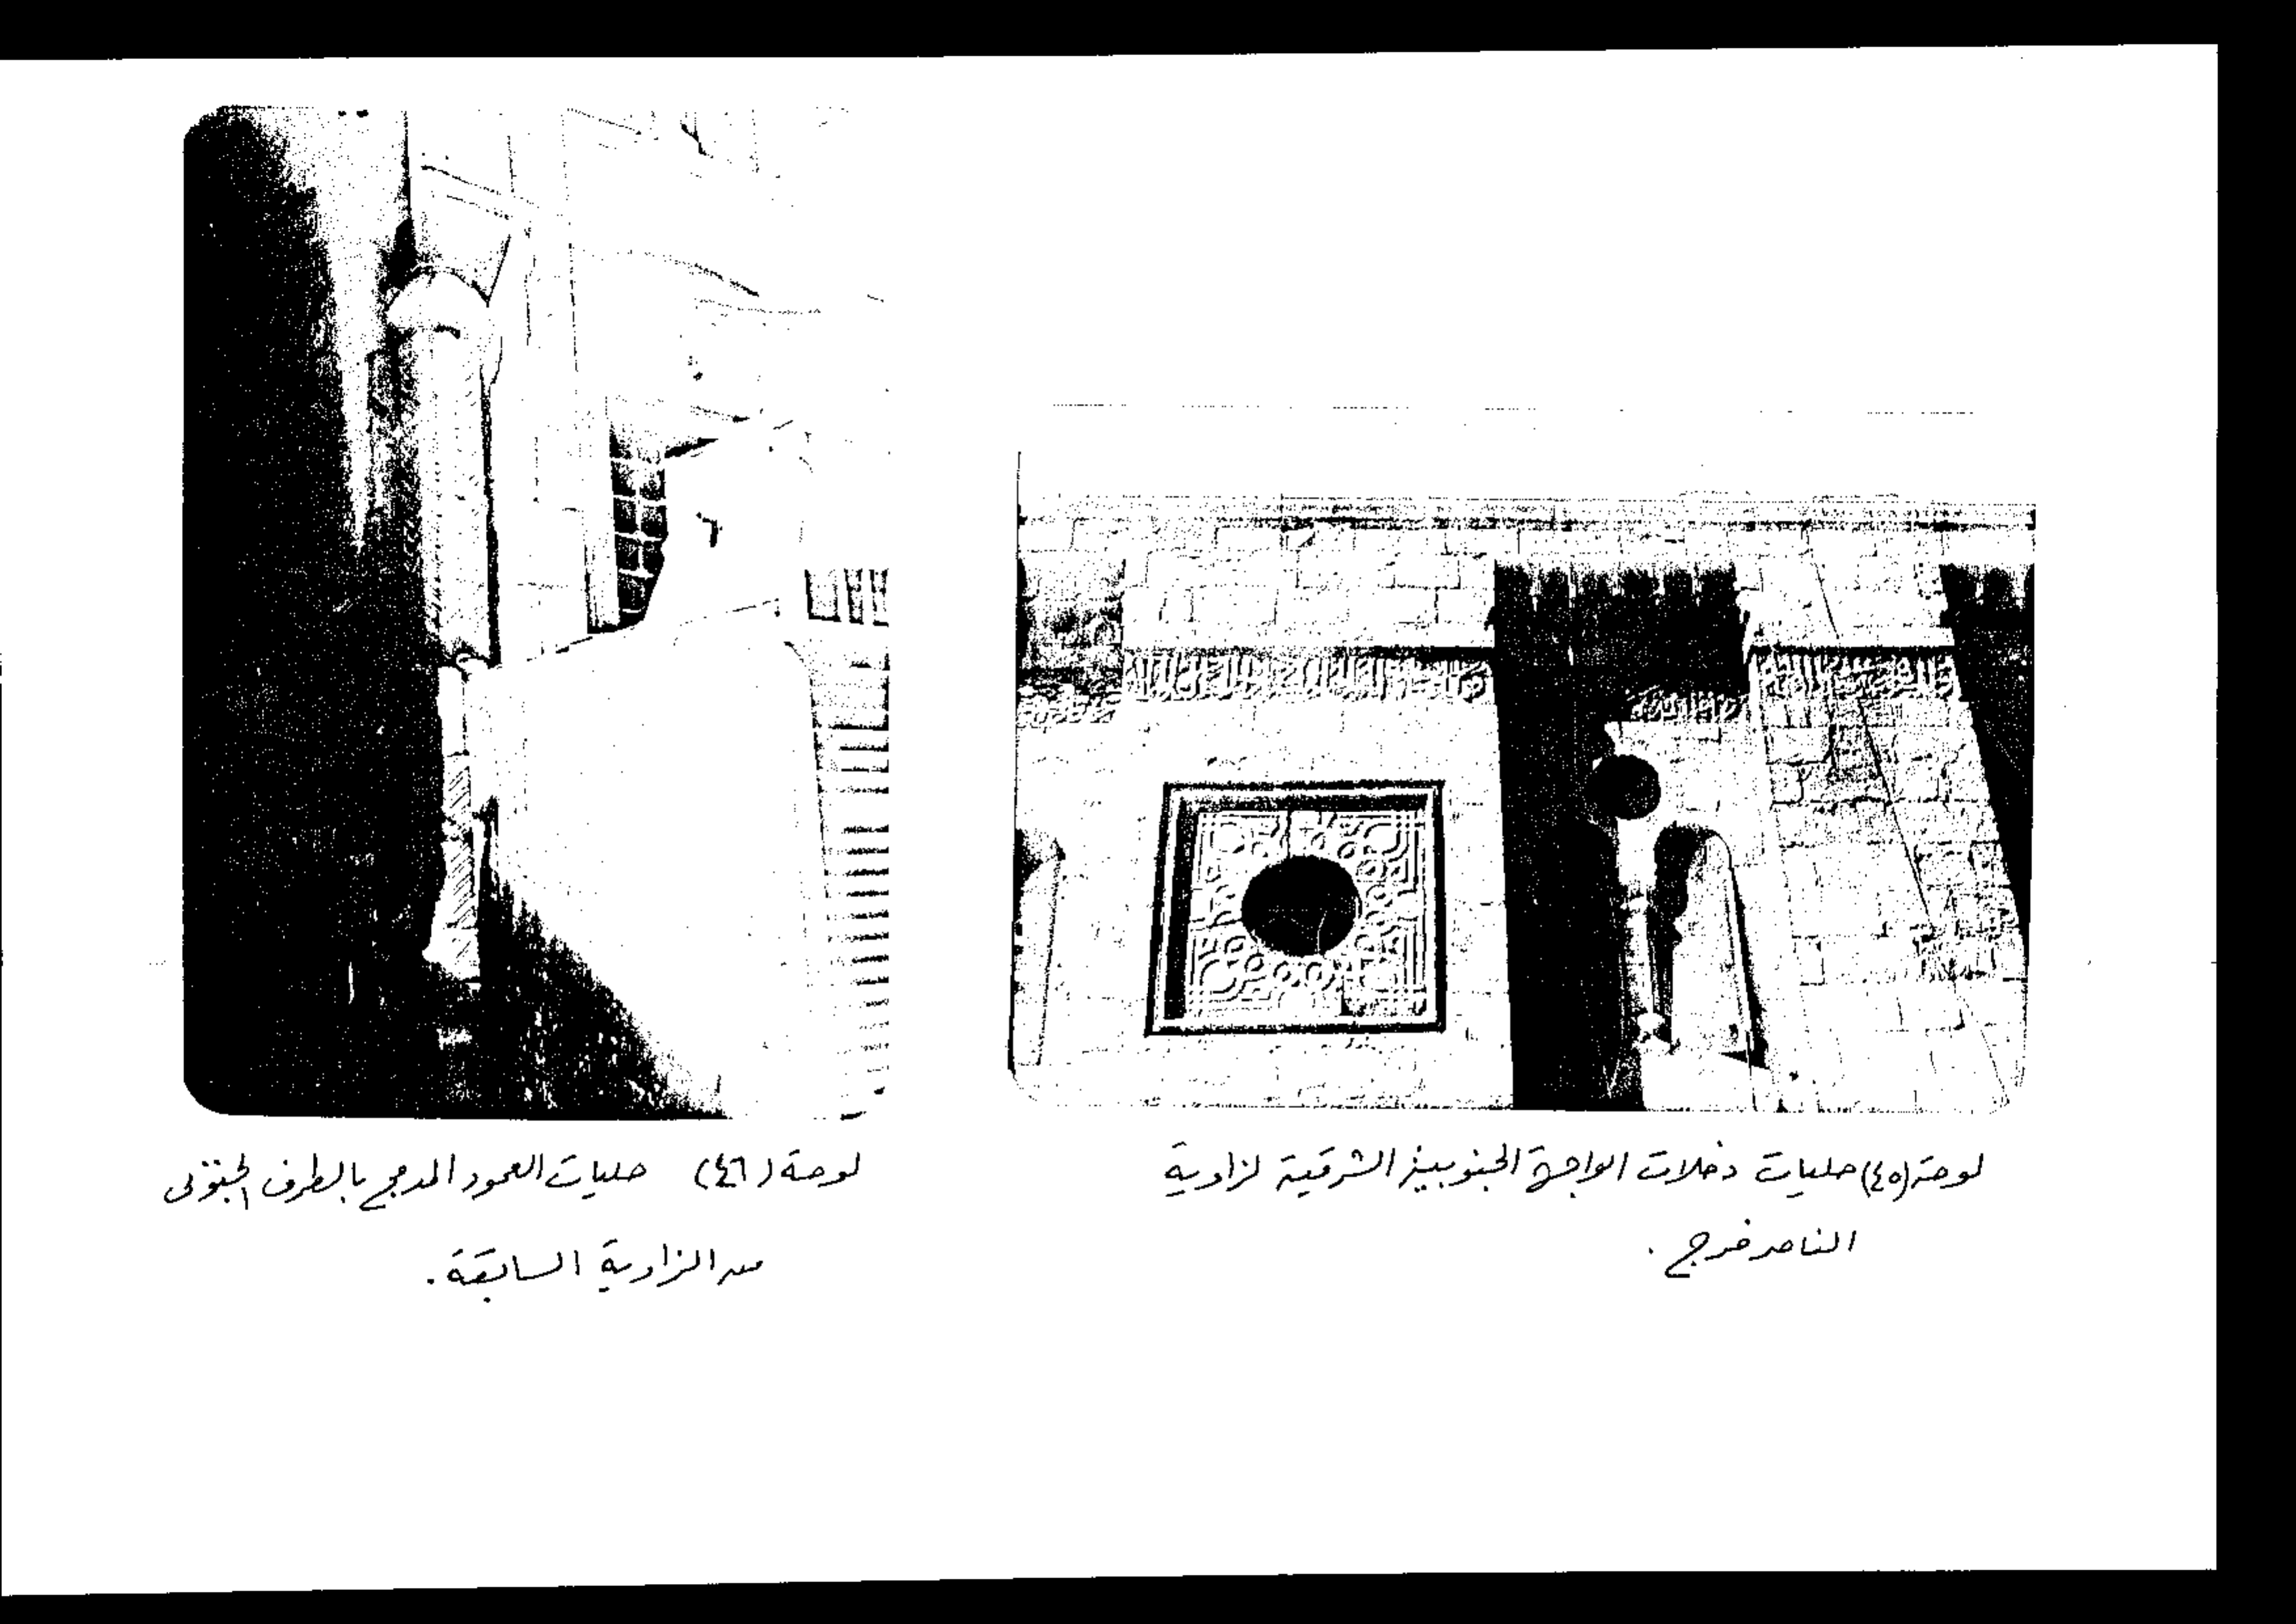 لوحة (٤٥) حليات دخلات الواجهة الجنوبية الشرقية لزاوية
الناصر فرج .
لوحة (٤٦) حليات العمود المدمج بالطرف الجنوبى
من الزاوية السابقة .